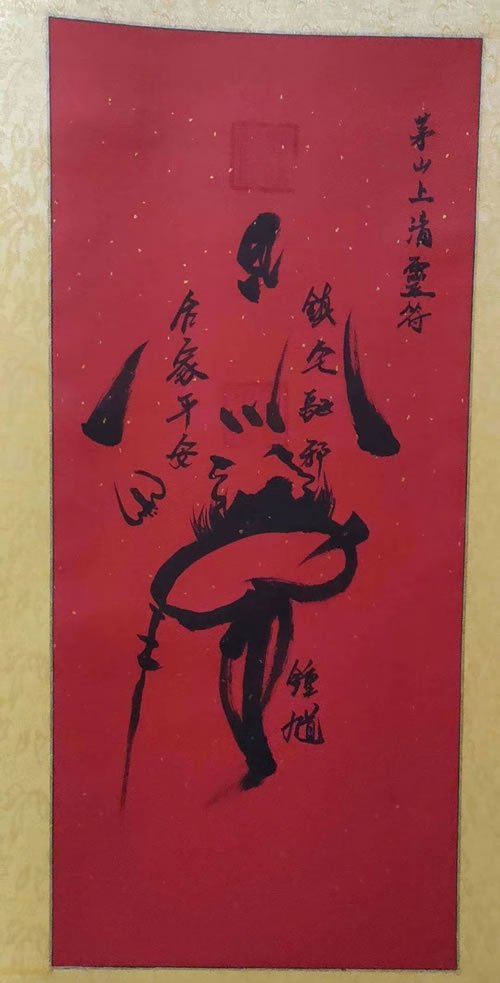 茅山上清靈符
鎮宅駈邪
合家平安
鍾馗